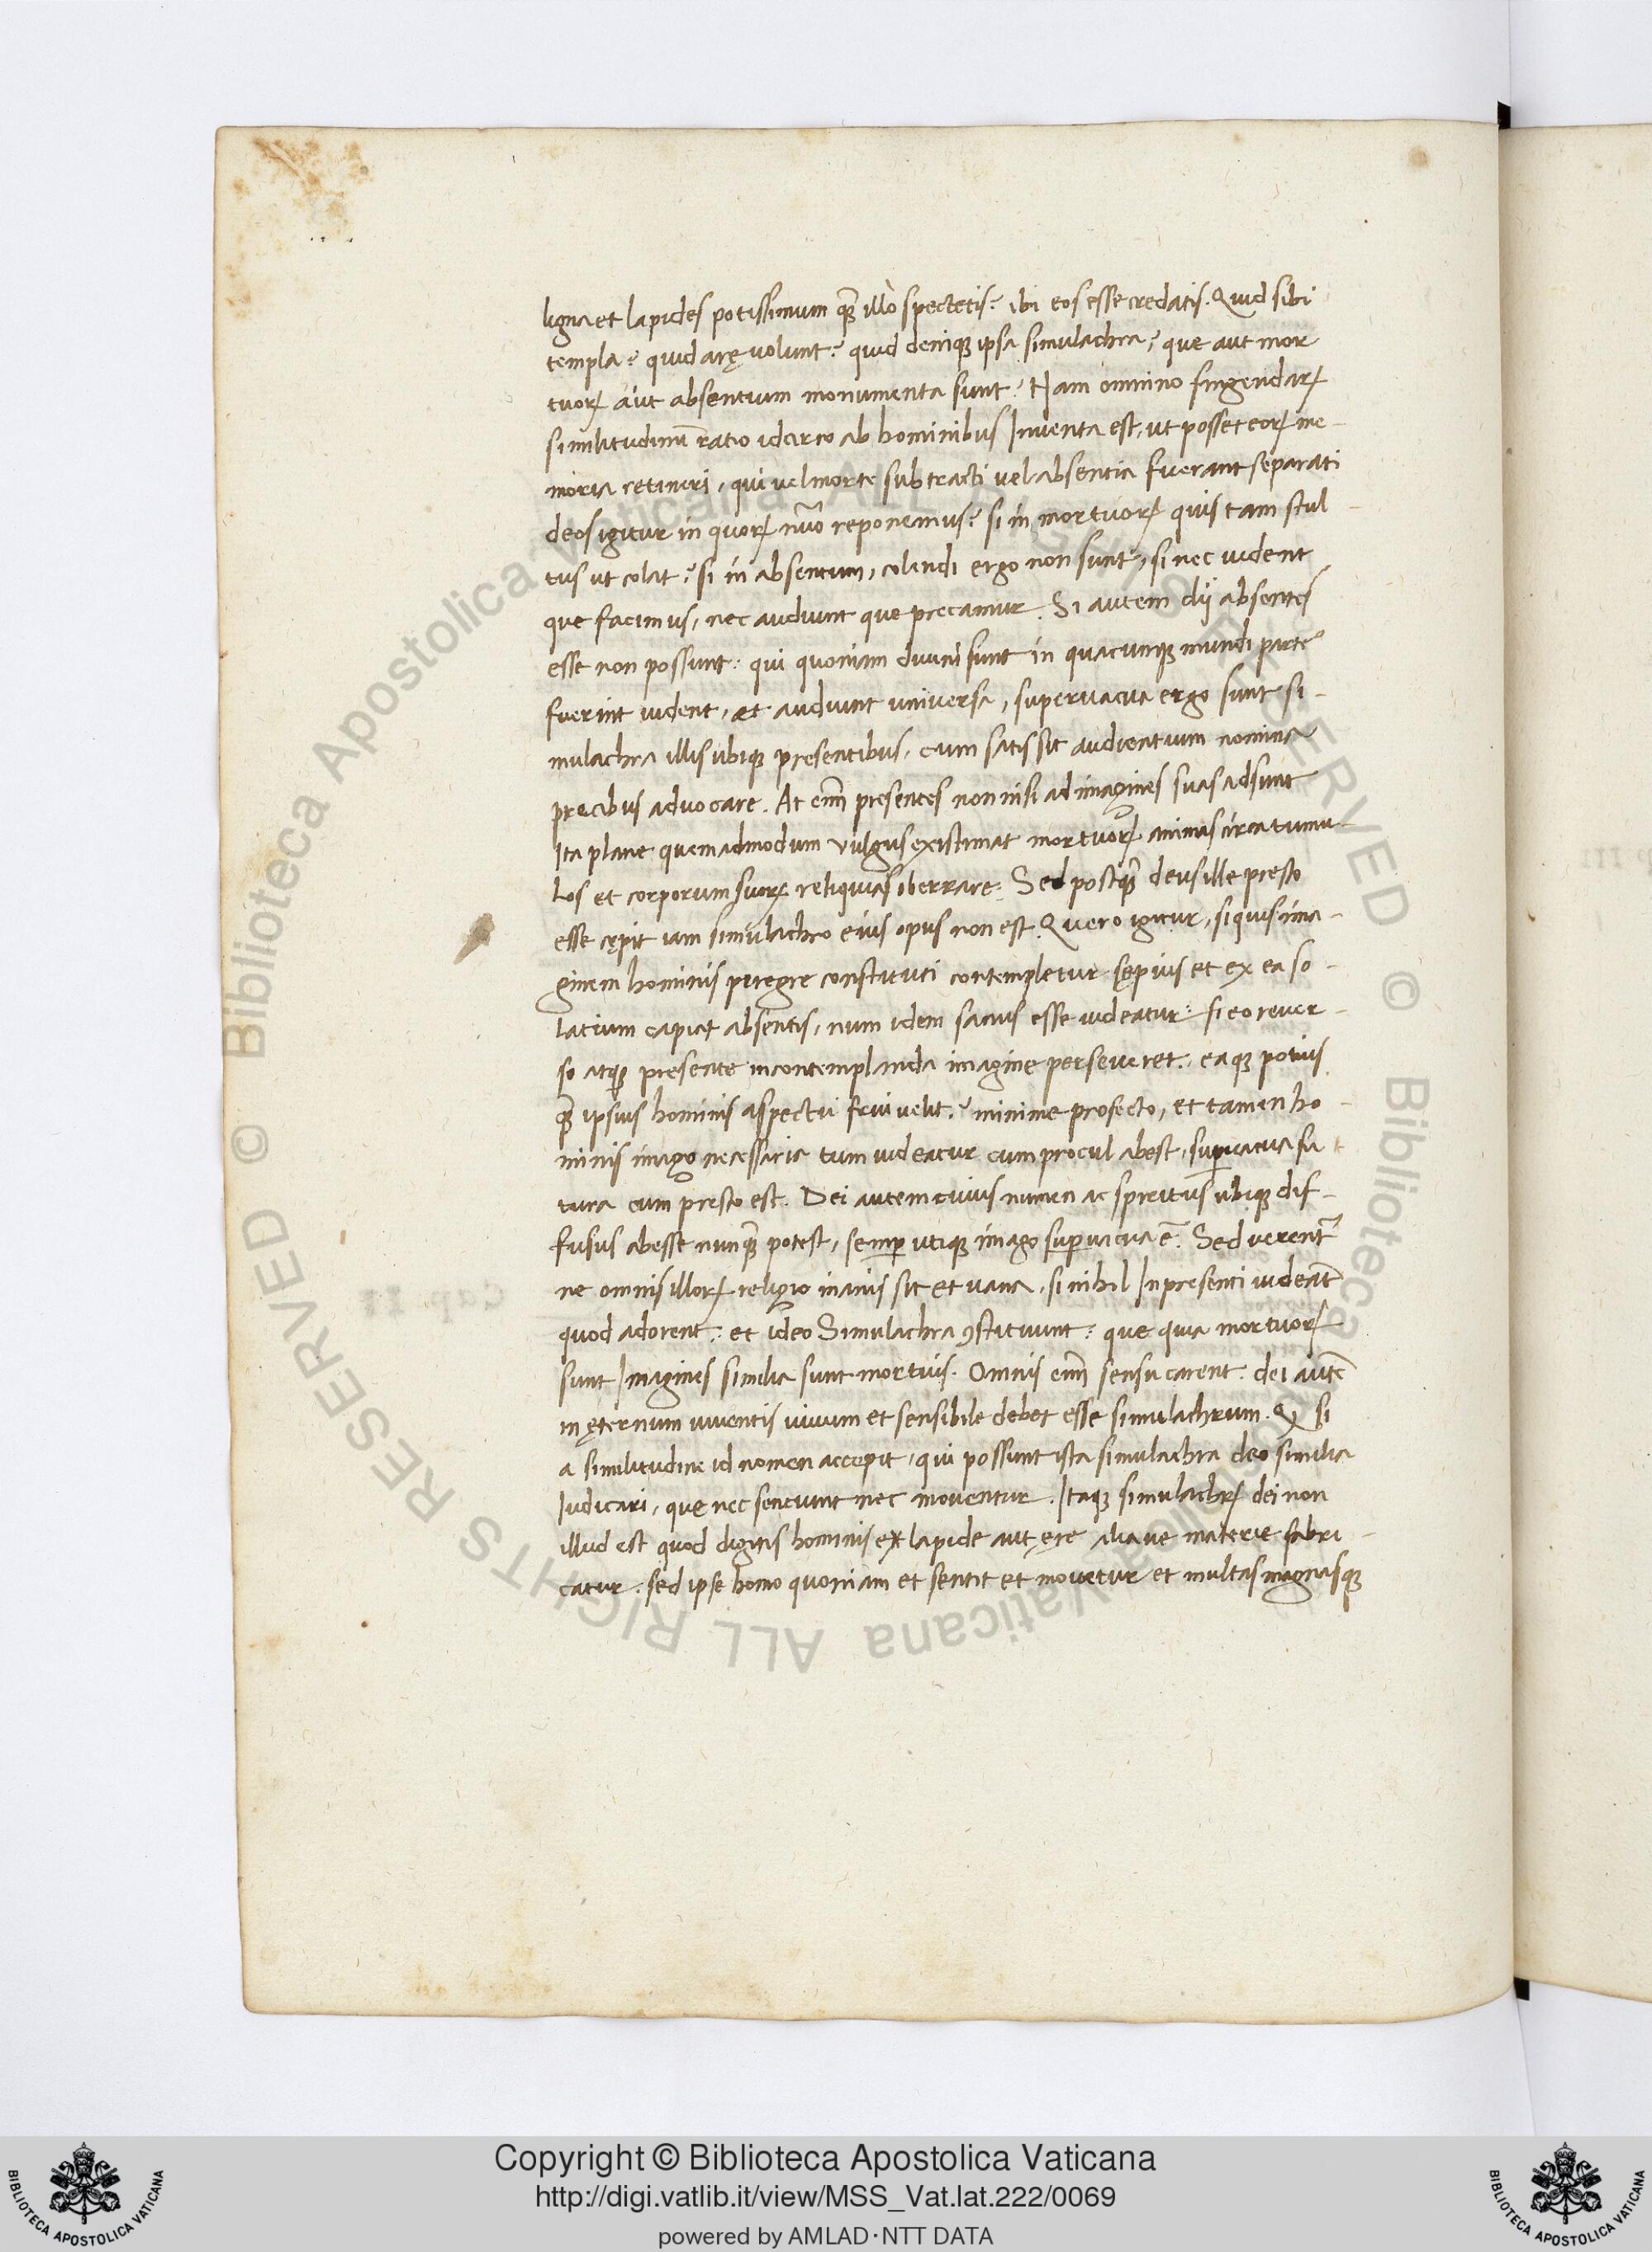 ligna et lapides potissimum qȝ̃ illo spectetis? ibi eos esse credatis. Quid sibi
templa? quid arę uolunt? quid deniqȝ ipsa simulachra? que aut mor
tuoꝝ aut absentium monumenta sunt? Nam omnino fingendaꝝ
similitudinũ ratio idcirco ab hominibus Inuenta est, ut posset eoꝝ me-
moria retineri, qui uel morte subtracti uel absentia fuerant separati
deos igitur in quoꝝ nũo reponemus? si in mortuoꝝ quis tam stul-
tus ut colat? si in absentum, colendi ergo non sunt, si nec uident
que facimus, nec audiunt que precamur. Si autem dij absentes
esse non possunt: qui quoniam diuini sunt in quacunqȝ mundi parte
fuerint uident, et audiunt uniuersa, superuacua ergo sunt si-
mulachra illis ubiqȝ presentibus, cum satis sit audientium nomina
precibus aduocare. At eĩm presentes non nisi ad imagines suas adsunt
Ita plane quemadmodum vulgus existimat mortuoꝝ animas circa tumu-
los et corporum suoꝝ reliquias oberrare. Sed postqȝ̃ deus ille presto
esse cępit iam simulachro eius opus non est. Quero igitur, si quis ima-
ginem hominis peregre constituti contempletur sępius et ex ea so-
latium capiat absentis, num idem sanus esse uideatur: si eo reuer-
so atqȝ presente in contemplanda imagine perseueret: eaqȝ potius
qȝ̃ ipsius hominis aspectu frui uelit? minime profecto, et tamen ho-
minis imago necessaria tum uideatur cum procul abest, suꝑuacua fu
tura cum presto est. Dei autem cuius numen ac spiritus ubiqȝ dif-
fusus abesse nunqȝ̃ potest, semꝑ utiqȝ imago suꝑuacua ẽ. Sed uerent᷑
ne omnis illoꝝ religio inanis sit et uana, si nihil In presenti uideãt
quod adorent: et ideo Simulachra ꝯstituunt: que quia mortuoꝝ
sunt Imagines similia sunt mortuis. Omnis eĩm sensu carent: dei autẽ
in ęternum uiuentis uiuum et sensibile debet esse simulachrum. Qꝫ si
a similitudine id nomen accepit, qui possunt ista simulachra deo similia
Iudicari, que nec sentiunt nec mouentur. Itaqȝ simulachꝝ dei non
illud est quod digitis hominis ex lapide aut ęre aliaue materie fabri-
catur: sed ipse homo quoniam et sentit et mouetur et multas magnasqȝ
Copyright © Biblioteca Apostolica Vaticana
http://digi.vatlib.it/view/MSS_Vat.lat.222/0069
powered by AMLAD·NTT DATA
BIBLIOTECA APOSTOLICA VATICANA
BIBLIOTECA APOSTOLICA VATICANA
© Biblioteca Apostolica Vaticana ALL RIGHTS RESERVED
© Biblioteca Apostolica Vaticana ALL RIGHTS RESERVED